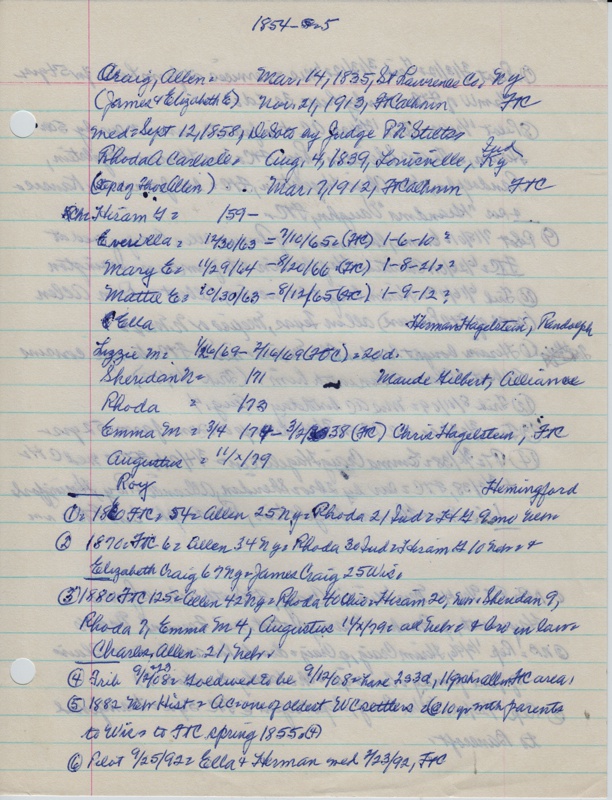 1854-5
Craig, Allen = Mar. 14, 1835, St Lawrence Co, Ny
(James & Elizabeth E) Nov. 21, 1913, Ft Calhoun FtC
med = Sept 12, 1858, DeSoto by Judge
Rhoda A Carlisle = Aug. 4, 1839, Louisville, Ind Ky
Mar. 7, 1912, Ft Calhoun FtC
Ch: Hiram G = /59-
Everilla = 12/30/63 = 7/10/65 = (FtC) 1-6-10 ?
Mary E = 11/29/64 - 8/20/66 (FtC) 1-8-21 = ?
Mattie E = 10/30/63 - 8/12/65 (FtC) 1-9-12 ?
Ella Herman Hagelstein, Randolph
Lizzie M = 1/26/69 - 2/16/69 (FtC) = 20d.
Sheridan N = /71 Maude Hilbert, Alliance
Rhoda = /72
Emma M = 3/4 /74 - 3/2/1938 (FtC) Chris Hagelstein, FtC
Augustus = 11/x/79
Roy Hemingford
① = 1860 FtC = 54 = Allen 25 Ny = Rhoda 21 Ind = H G 9 mo Nebr
② 1870 = FtC 6 = Allen 34 Ny = Rhoda 30 Ind = Hiram G 10 Nebr = &
Elizabeth Craig 67 Ny = James Craig 25 Wis.
③ 1880 FtC 125 = Allen 42 Ny = Rhoda 40 Ohio = Hiram 20, Nebr = Sheridan 9,
Rhoda 7, Emma M 4, Augustus 11/x/79 = all Nebr = & bro in law =
Charles Allen 21, Nebr.
④ Trib 9/2/08 = to be 9/12/08 = have 233d, 11 gch all in FtC area,
⑤ 1882 Nebr Hist = AC = one of oldest WC settlers @ 10 yr with parents
to Wis = to FtC spring 1855. ④
⑥ Pilot 9/25/92 = Ella & Herman med 9/23/92, FtC